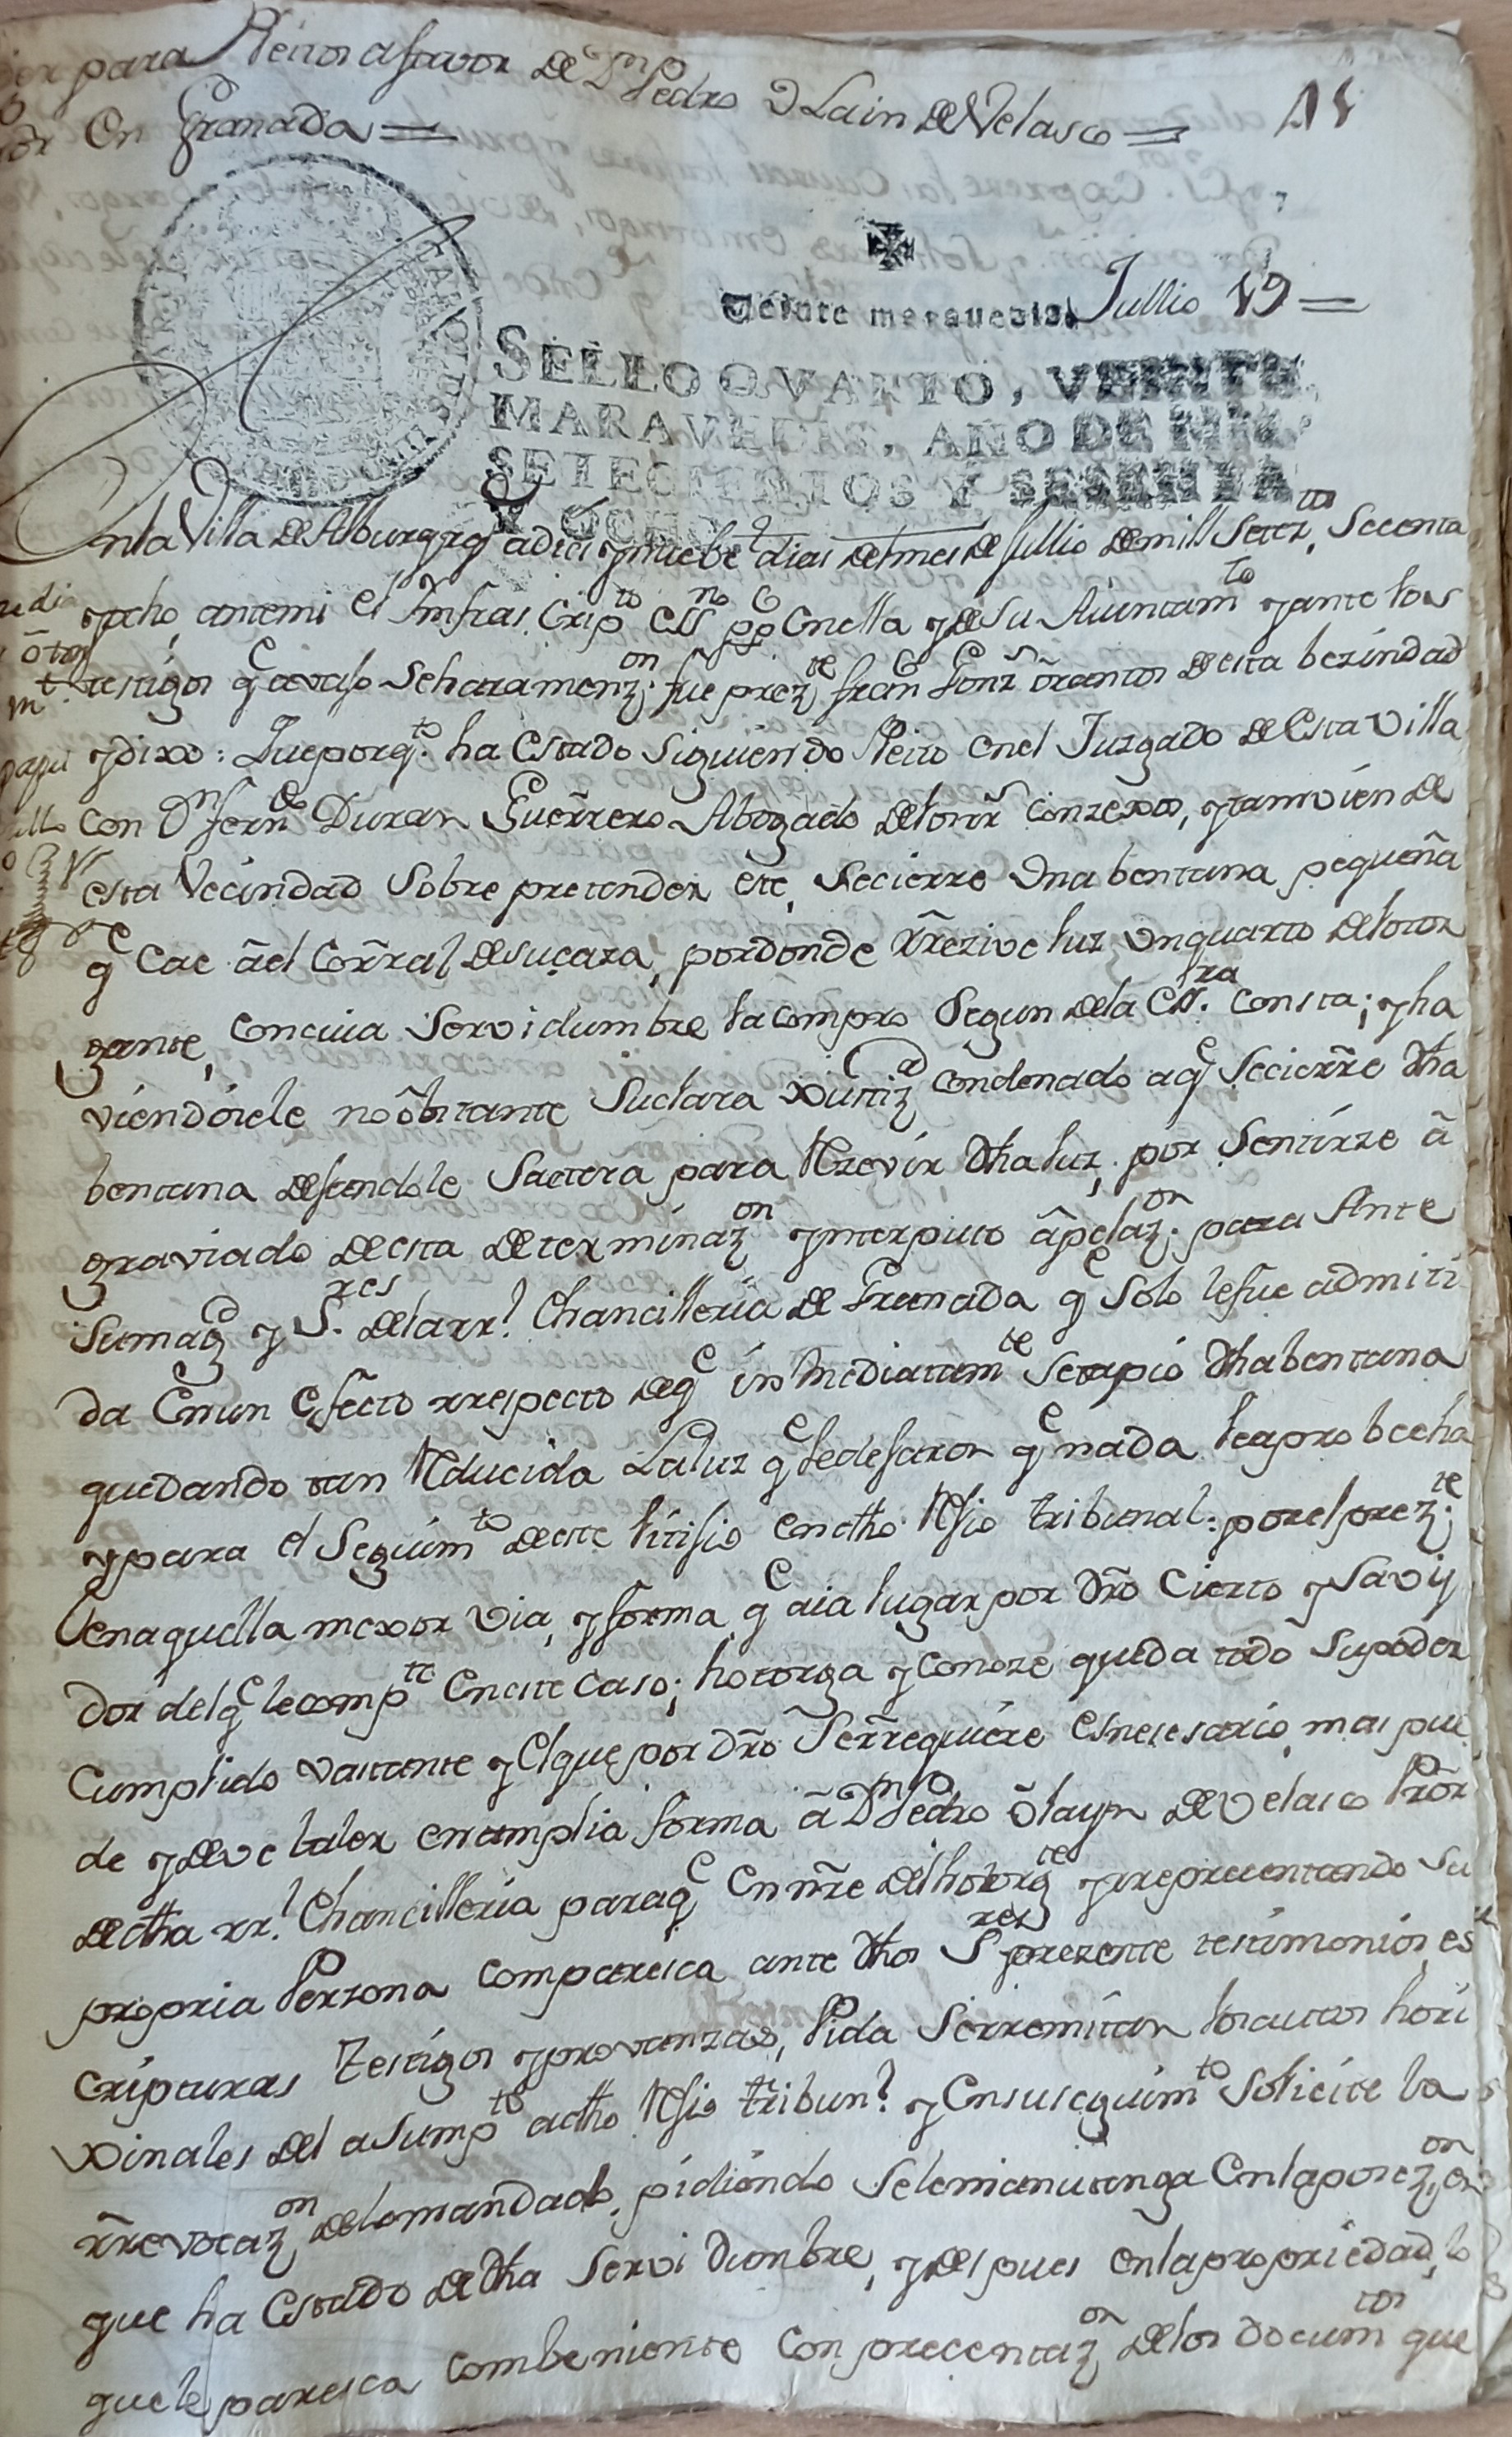 para Pleitos a favor de Dn Pedro Olain de Velasco =
En Granada =
Jullio 19 =
Veinte maravedis
SELLO QVARTO, VEINTE
MARAVEDIS, AÑO DE MIL
SETECIENTOS Y SESENTA
Y OCHO
En la Villa de Alburqrq a dies y nuebe dias del mes de Jullio de mill setez.tos Secenta
y ocho, ante mi el Infras.cripto Essno ppco en ella y de su Aiuntamto y ante los
testigos qe avaxo se hara menzon. fue prezte Franco Gonz.s orantos de esta bezindad
y dixo: Que por qto. ha estado Siguiendo Pleito en el Juzgado de Esta Villa
con Dn Ferndo Duran Guerrero Abogado de los rrs conzexos, y tamvien de
esta Vecindad Sobre pretender este, Se cierre Una bentana pequeña
qe Cae a el Corral de su caza, por donde rrezive luz un quarto del otor
gante, con cuia Servidumbre la compro Segun de la Essra. consta; y ha
viendosele no obstante Su clara xustizª condenado a qe Se cierre dha
bentana desandole Saetera para Rzevir dha luz, por Sentirze a
graviado de esta determinazon ynterpuso apelazon. para Ante
Su magd y Sres de la rrl Chancilleria de Granada qe Solo le fue admiti
da En un efecto rrespecto de qe inmediatamte Se tapió dha bentana
quedando tan Rducida La luz qe le desaron qe nada le aprobecha
y para el Seguimto de este litisio en dho Rsio tribunal: por el prezte.
en aquella mexor via, y forma qe aia lugar por dro Cierto y Savi
dor del qe le compte en este caso; hotorga y conoze que da todo Su poder
Cumplido vastante y el que por dro Se rrequiere es nesesario, mas pue
de y deve baler en amplia forma a Dn Pedro olayn de Velasco Pror
de dha rrl. Chancilleria para qe en nre del hotorgte y rrepresentando Su
propria Perzona comparesca ante dhos Sres presente testimonios es
cripturas testigos y provanzas, Pida Se rremitan los autos hori
xinales del asumpto a dho Rsio tribunl. y en su seguimto Solicite la
rrevocazon de lo mandado, pidiendo Se le manutenga en la posezon, en
que ha Estado de dha Servidumbre, y despues en la propriedad, lo
que le paresca combeniente con precentazon de los documtos que